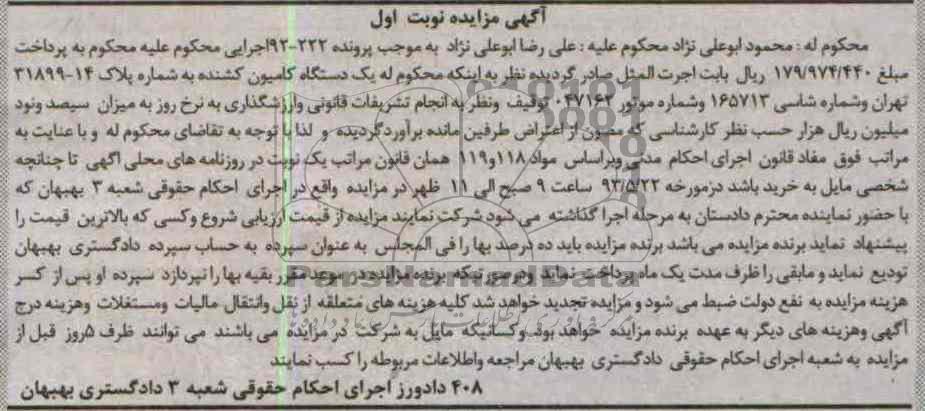 آگهی مزایده نوبت اول
محکوم له : محمود ابوعلی نژاد محکوم علیه : علی رضا ابوعلی نژاد به موجب پرونده ۲۲۲-۹۲اجرایی محکوم علیه محکوم به پرداخت
مبلغ ۱۷۹/۹۷۴/۴۴۰ ریال بابت اجرت المثل صادر گردیده نظر به اینکه محکوم له یک دستگاه کامیون کشنده به شماره پلاک ۱۴-۳۱۸۹۹
تهران وشماره شاسی ۱۶۵۷۱۳ وشماره موتور ۰۴۷۱۶۲ توقیف ونظر به انجام تشریفات قانونی وارزشگذاری به نرخ روز به میزان سیصد ونود
میلیون ریال هزار حسب نظر کارشناسی که مصون از اعتراض طرفین مانده برآورد گردیده و لذا با توجه به تقاضای محکوم له و با عنایت به
مراتب فوق مفاد قانون اجرای احکام مدنی وبراساس مواد ۱۱۸و۱۱۹ همان قانون مراتب یک نوبت در روزنامه های محلی اگهی تا چنانچه
شخصی مایل به خرید باشد درمورخه ۹۳/۵/۲۲ ساعت ۹ صبح الی ۱۱ ظهر در مزایده واقع در اجرای احکام حقوقی شعبه ۳ بهبهان که
با حضور نماینده محترم دادستان به مرحله اجرا گذاشته می شود شرکت نمایند مزایده از قیمت ارزیابی شروع وکسی که بالاترین قیمت را
پیشنهاد نماید برنده مزایده می باشد برنده مزایده باید ده درصد بها را فی المجلس به عنوان سپرده به حساب سپرده دادگستری بهبهان
تودیع نماید و مابقی را ظرف مدت یک ماه پرداخت نماید ودرصورتیکه برنده مزایده در موعد مقرر بقیه بها را نپردازد سپرده او پس از کسر
هزینه مزایده به نفع دولت ضبط می شود و مزایده تجدید خواهد شد کلیه هزینه های متعلقه از نقل وانتقال مالیات ومستغلات وهزینه درج
آگهی وهزینه های دیگر به عهده برنده مزایده خواهد بود وکسانیکه مایل به شرکت در مزایده می باشند می توانند ظرف ۵روز قبل از
مزایده به شعبه اجرای احکام حقوقی دادگستری بهبهان مراجعه واطلاعات مربوطه را کسب نمایند
۴۰۸ دادورز اجرای احکام حقوقی شعبه ۳ دادگستری بهبهان
ParsNamadData